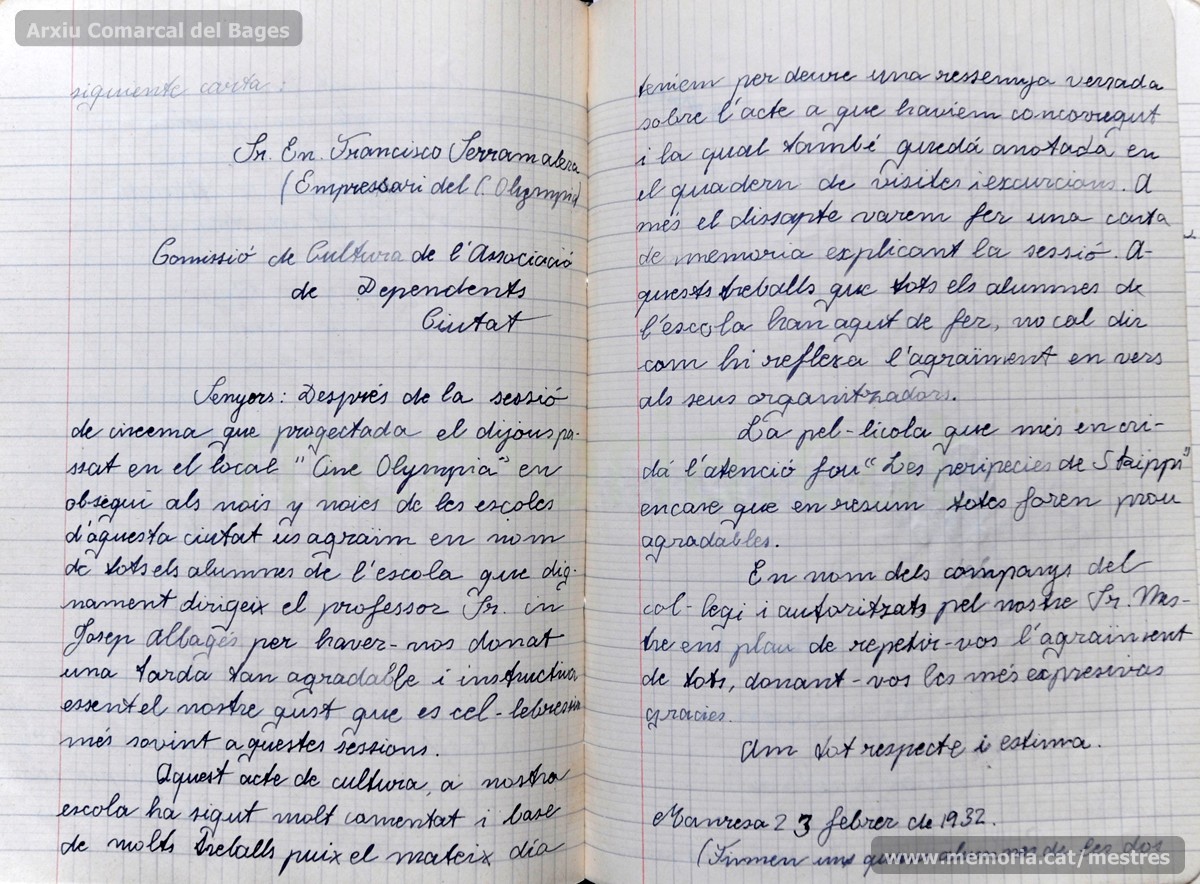 Arxiu Comarcal del Bages
siguiente carta :
Sr. En. Francisco Serramalera
(Empressari del C. Olympia)
Comissió de Cultura de l'Associació
de Dependents
Ciutat
Senyors: Després de la sessió
de cinema que progectada el dijous pa-
ssat en el local "Cine Olympia" en
obsequi als nois y noies de les escoles
d'aquesta ciutat us agraïm en nom
de tots els alumnes de l'escola que dig-
nament dirigeix el professor Sr. in
Josep Albagés per haver-nos donat
una tarda tan agradable i instructiva
essent el nostre gust que es cel-lebressin
més sovint aquestes sessions.
Aquest acte de cultura, a nostra
escola ha sigut molt comentat i base
de molts treballs puix el mateix dia
teniem per deure una ressenya versada
sobre l'acte a que haviem concorregut
i la qual també quedá anotada en
el quadern de visites i excurcions. A
més el dissapte varem fer una carta
de memoria explicant la sessió. A-
quests treballs que tots els alumnes de
l'escola han agut de fer, no cal dir
com hi reflexa l'agraïment en vers
als seus organitzadors.
La pel-lícola que més en cri-
dá l'atenció fou "Les peripecies de
encare que en resum totes foren prou
agradables.
En nom dels companys del
col-legi i autoritzats pel nostre Sr. Mes-
tre ens plau de repetir-vos l'agraïment
de tots, donant-vos les més expresivas
gracies.
Am tot respecte i estima.
Manresa 23 febrer de 1932.
(Firmen uns
www.memoria.cat/mestres